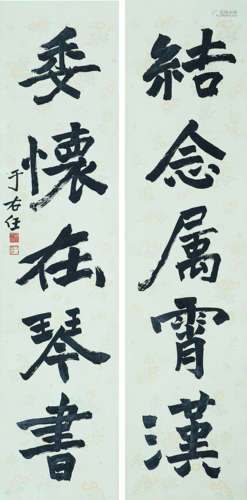 結念属霄漢
委懷在琴書
于右任